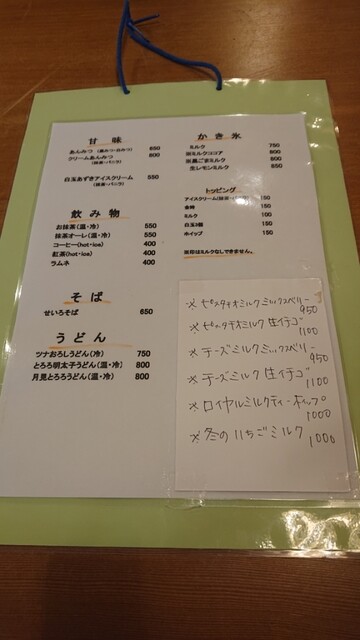 甘味
あんみつ (黒みつ・白みつ) 650
クリームあんみつ 800
(抹茶・バニラ)
白玉あずきアイスクリーム 550
(抹茶・バニラ)
飲み物
お抹茶(温・冷) 550
抹茶オーレ(温・冷) 550
コーヒー(hot・ice) 400
紅茶(hot・ice) 400
ラムネ 400
そば
せいろそば 650
うどん
ツナおろしうどん(冷) 750
とろろ明太子うどん(温・冷) 800
月見とろろうどん(温・冷) 800
かき氷
ミルク 750
※ミルクココア 800
※黒ごまミルク 800
生レモンミルク 850
トッピング
アイスクリーム(抹茶・バニラ)
金時 100
ミルク 100
白玉3個 150
ホイップ 150
※印はミルクなしできません。
※ピスタチオミルクミックスベリー
950
※ピスタチオミルク生イチゴ
1100
※チーズミルクミックスベリー
950
※チーズミルク生イチゴ
1100
※ロイヤルミルクティーホイップ
1000
※冬のいちごミルク
1000